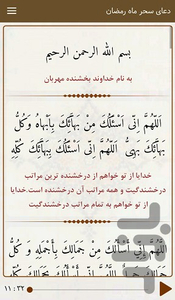 دعای سحر ماه رمضان
بسم الله الرحمن الرحیم
به نام خداوند بخشنده مهربان
اَللّهُمَّ اِنّى اَسْئَلُكَ مِنْ بَهاَّئِكَ بِاَبْهاهُ وَكُلُّ
بَهاَّئِكَ بَهِىُّ اَللّهُمَّ اِنّى اَسْئَلُكَ بِبَهاَّئِكَ كُلِّهِ
خدایا از تو خواهم از درخشنده ترین مراتب
درخشندگیت و همه مراتب آن درخشنده است.خدایا
از تو خواهم به تمام مراتب درخشندگیت
اَللّهُمَّ اِنّى اَسْئَلُكَ مِنْ جَمالِكَ بِاَجْمَلِهِ وَ كُلُّ
جَمالِكَ
۱۱ : ۳۲